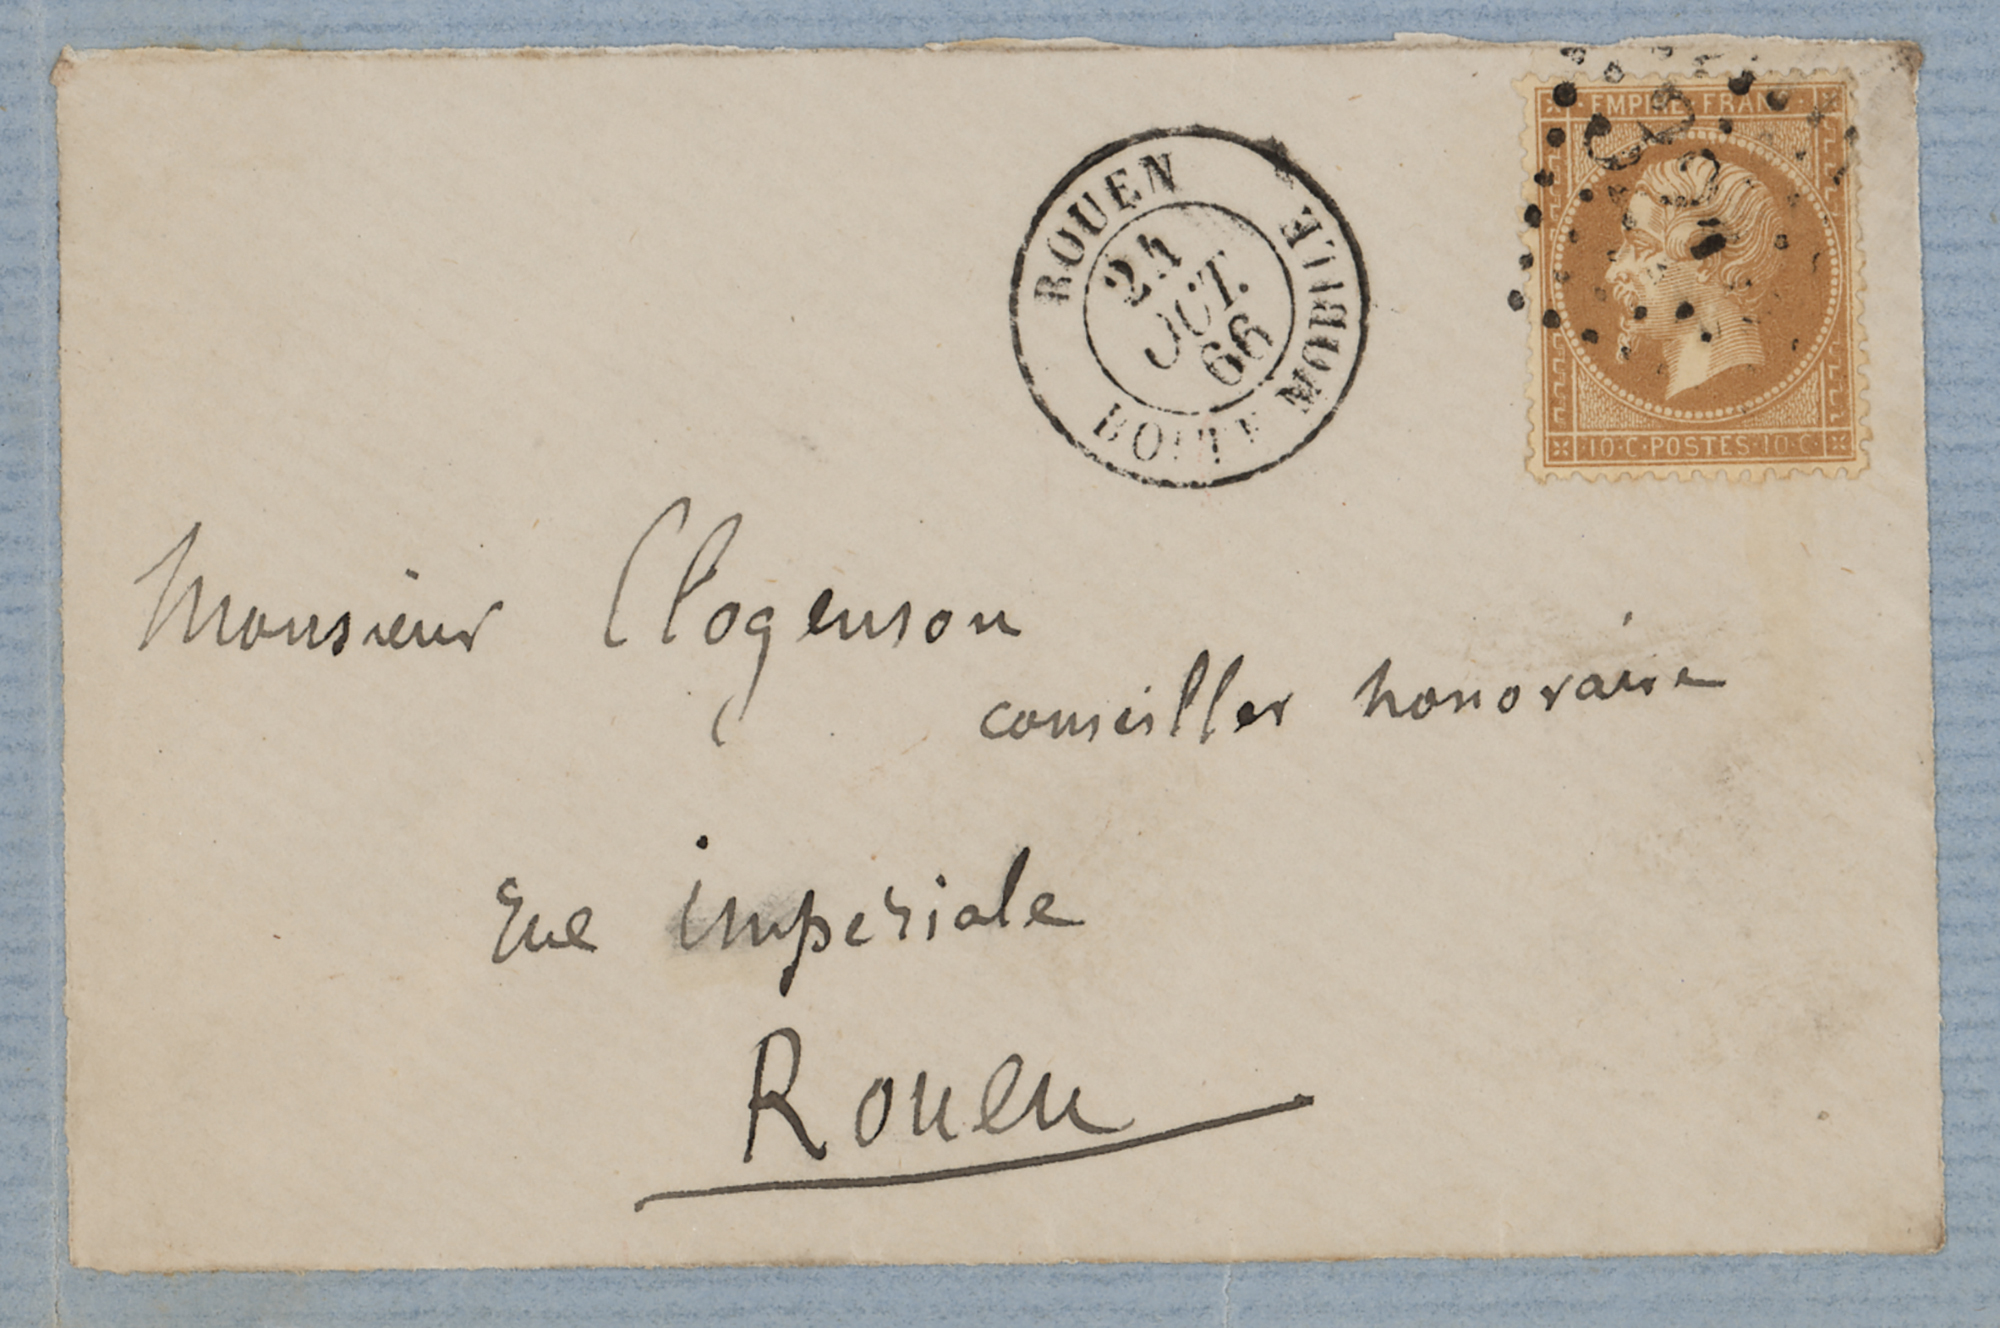 EMPIRE FRANC
ROUEN
24
OCT.
66
BOITE MOBILE
10·C·POSTES·10·C
Monsieur Clogenson
conseiller honoraire
rue impériale
Rouen